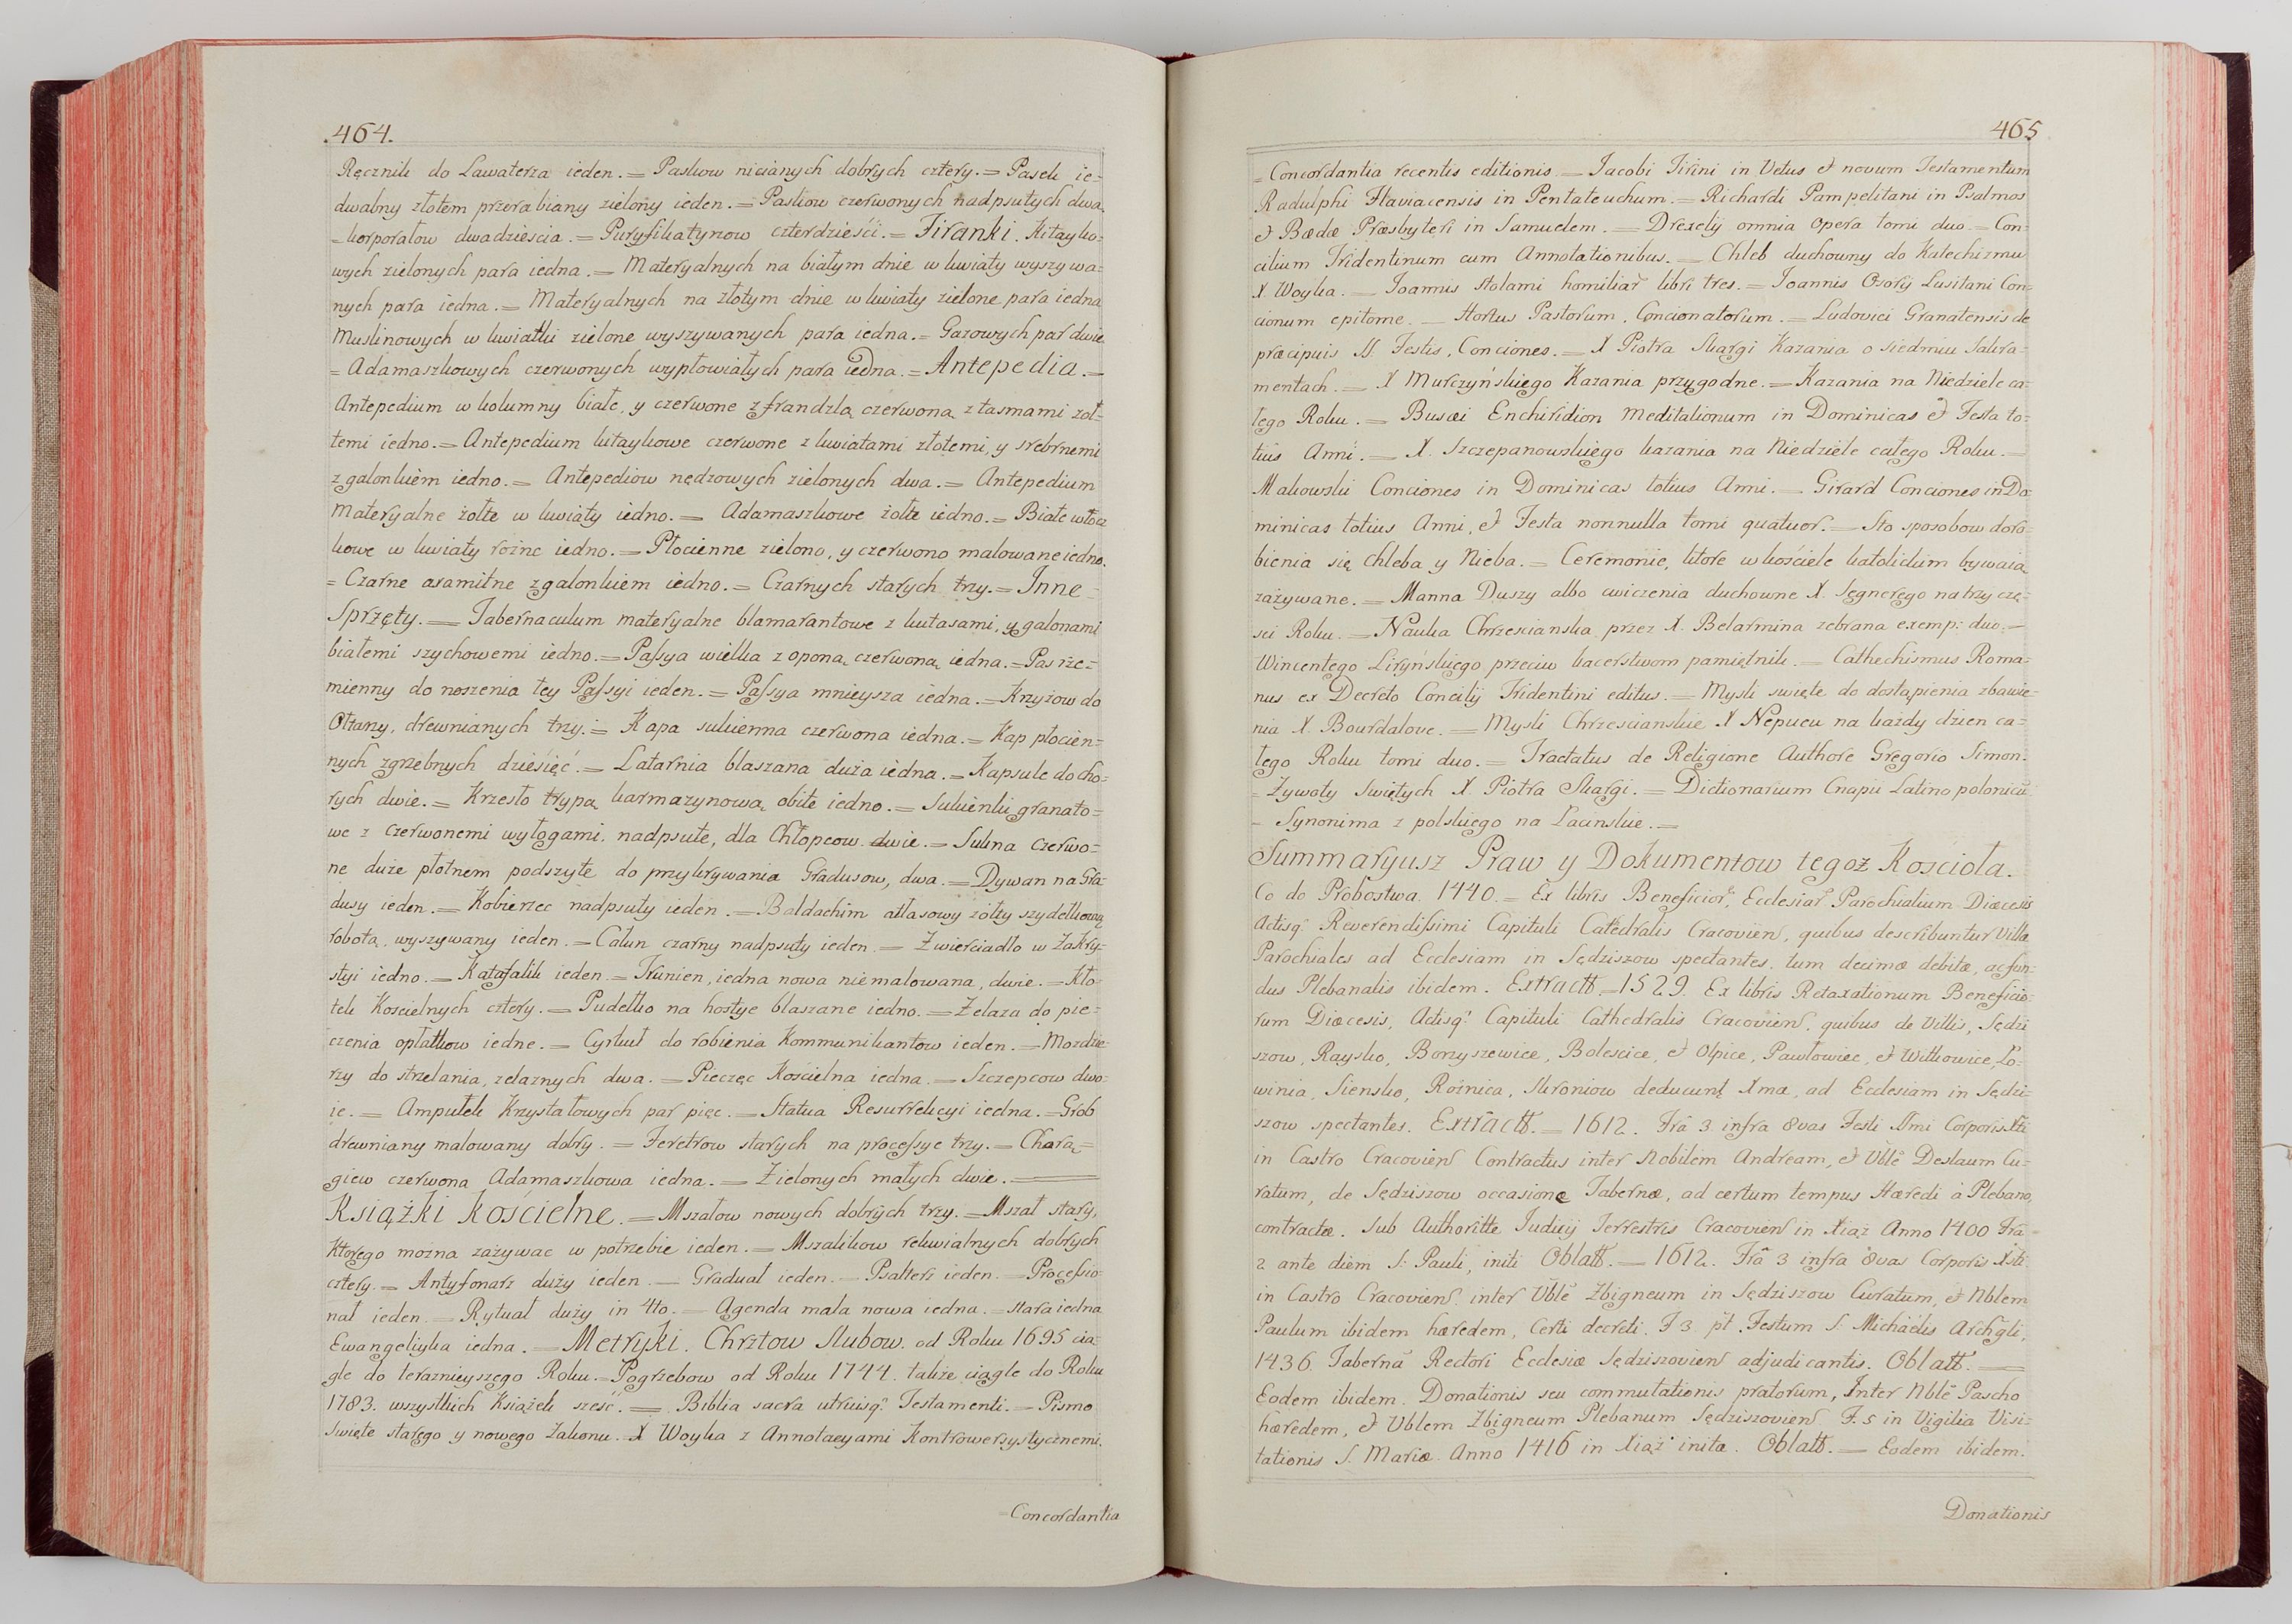 464.
Ręcznik do Lawaterza ieden. = Paskow nicianych dobrych cztery. = Pasek ie=
dwabny złotem przerabiany zielony ieden. = Paskow czerwonych nadpsutych dwa
= korporałow dwadzieścia. = Puryfikatynow czterdzieści. = Firanki. Kitayko=
wych zielonych para iedna. = Materyalnych na białym dnie w kwiaty wyszywa=
nych para iedna. = Materyalnych na złotym dnie w kwiaty zielone para iedna
Muslinowych w kwiatki zielone wyszywanych para iedna. = Gazowych par dwie
= Adamaszkowych czerwonych wypłowiałych para iedna. = Antepedia. =
Antepedium w kolumny białe, y czerwone z frandzlą czerwoną z tasmami żoł=
temi iedno. = Antepedium kitaykowe czerwone z kwiatami złotemi, y srebrnemi
z galonkiem iedno. = Antepediow nędzowych zielonych dwa. = Antepedium
Materyalne żołte w kwiaty iedno. = Adamaszkowe żołte iedno. = Białe włócz
kowe w kwiaty rożne iedno. = Płocienne zielono, y czerwono malowane iedno.
= Czarne axamitne z galonkiem iedno. = Czarnych starych trzy. = Inne =
Sprzęty. = Tabernaculum materyalne blamarantowe z kutasami, y galonami
białemi szychowemi iedno. = Passya wielka z oponą czerwoną iedna. = Pas rze=
mienny do noszenia tey Passyi ieden. = Passya mnieysza iedna. = Krzyżow do
Ołtarzy, drewnianych trzy. = Kapa sukienna czerwona iedna. = Kap płocien=
nych zgrzebnych dziesięć. = Latarnia blaszana duża iedna. = Kapsule do cho=
rych dwie. = Krzesło trypą karmazynową obite iedno. = Sukienki granato=
we z czerwonemi wyłogami, nadpsute, dla Chłopcow dwie. = Sukna czerwo=
ne duże płotnem podszyte do przykrywania Gradusow, dwa. = Dywan na Gra=
dusy ieden. = Kobierzec nadpsuty ieden. = Baldachim atłasowy żołty szydełkową
robotą, wyszywany ieden. = Całun czarny nadpsuty ieden. = Zwierciadło w Zakry=
styi iedno. = Katafalik ieden. = Trunien, iedna nowa niemalowana, dwie. = Kło=
tek Kościelnych cztery. = Pudełko na hostye blaszane iedno. = Żelaza do pie=
czenia opłatkow iedne. = Cyrkuł do robienia Kommunikantow ieden. = Mozdzie=
rzy do strzelania, zelaznych dwa. = Pieczęc Kościelna iedna. = Szczepcow dwo=
ie. = Ampułek Krzystałowych par pięc. = Statua Resurrekcyi iedna. = Grob
drewniany malowany dobry. = Feretrow starych na processye trzy. = Chorą=
giew czerwona Adamaszkowa iedna. = Zielonych małych dwie. =
Książki kościelne. = Mszałow nowych dobrych trzy. = Mszał stary,
ktorego można zażywac w potrzebie ieden. = Mszalikow rekwialnych dobrych
cztery. = Antyfonarz duży ieden. = Graduał ieden. = Psałterz ieden. = Processio=
nał ieden. = Rytuał duży in 4to. = Agenda mała nowa iedna. = stara iedna
Ewangeliyka iedna. = Metryki. Chrztow Slubow. od Roku 1695 cią=
gle do terazniey­szego Roku. = Pogrzebow od Roku 1744. także ciągle do Roku
1783. wszystkich Książek sześć. = Biblia sacra utriusq. Testamenti. = Pismo
Swięte starego y nowego Zakonu. X Woyka z Annotacyami Kontrowersystycznemi.
=Concordantia
465
= Concordantia recentis editionis = Jacobi Tirini in Vetus & novum Testamentum
Radulphi Flaviacensis in Pentateuchum. = Richardi Pampelitani in Psalmos
& Bædæ Præsbyteri in Samuelem. = Drexelij omnia opera tomi duo. = Con=
cilium Tridentinum cum Annotationibus. = Chleb duchowny do Katechizmu
X. Woyka. = Joannis Stolami homiliar libri tres. = Joannis Osorij Lusitani Con=
cionum epitome. = Hortus Pastorum, Concionatorum. = Ludovici Granatensis de
præcipuis SS. Festis, Conciones. = X Piotra Skargi Kazania o siedmiu Sakra=
mentach. = X Murczyńskiego Kazania przygodne. = Kazania na Niedziele ca=
łego Roku. = Busæi Enchiridion Meditationum in Dominicas & Festa to=
tius Anni. = X. Szczepanowskiego kazania na Niedziele całego Roku. =
Makowski Conciones in Dominicas totius Anni. = Girard Conciones in Do=
minicas totius Anni, & Festa nonnulla tomi quatuor. = Sto sposobow doro=
bienia się chleba y Nieba. = Ceremonie, ktore w kościele katolickim bywaią
zażywane. = Manna Duszy albo cwiczenia duchowne X. Segnerego na trzy czę=
sci Roku. = Nauka Chrzescianska przez X. Belarmina zebrana exemp: duo. =
Wincentego Liryńskiego przeciw kacerstwom pamiętnik. = Cathechismus Roma=
nus ex Decreto Concilij Tridentini editus. = Mysli swięte do dostąpienia zbawie=
nia X. Bourdaloue. = Mysli Chrzescianskie X Nepueu na każdy dzien ca=
łego Roku tomi duo. = Tractatus de Religione Authore Gregorio Simon.
= Zywoty Swiętych X. Piotra Skargi. = Dictionarium Cnapii Latino polonicū
= Synonima z polskiego na Łacinskie. =
Summaryusz Praw y Dokumentow tegoż Kościoła.
Co do Probostwa. 1440. = Ex libris Beneficior, Ecclesiar Parochialium Diæcesis
Actisq. Reverendissimi Capituli Catedralis Cracovien, quibus describuntur Villæ
Parochiales ad Ecclesiam in Sędziszow spectantes, tum decimæ debitæ, ac fun=
dus Plebanalis ibidem. Extractt = 1529. Ex libris Retaxationum Beneficio=
rum Diæcesis, Actisq. Capituli Cathedralis Cracovien, quibus de Villis, Sędzi
szow, Raysko, Boryszewice, Bolescice, & Olpice, Pawłowiec, & Witkowice, Ło=
winia, Siensko, Rożnica, Skroniow deducunt Xma, ad Ecclesiam in Sędzi=
szow spectantes. Extractt. = 1612. Frâ 3 infra 8vas Festi SSmi Corporis Xti
in Castro Cracovien Contractus inter Nobilem Andream, & Vble Deslaum Cu=
ratum, de Sędziszow occasione Tabernæ, ad certum tempus Hæredi à Plebano,
contractæ. Sub Authoritte Judicij Terrestris Cracovien in Xiąz Anno 1400 Frâ
2 ante diem S. Pauli, initi Oblatt. = 1612. Frâ 3 infra 8vas Corporis Xsti
in Castro Cracovien inter Vble Zbigneum in Sędziszow Curatum, & Nblem
Paulum ibidem hæredem, Certi decreti. F 3 pt. Festum S. Michaëlis Archgli,
1436. Tabernâ Rectori Ecclesiæ Sędziszovien adjudicantis. Oblatt. =
Eodem ibidem. Donationis seu commutationis pratorum, Inter Nble Pascho
hæredem, & Vblem Zbigneum Plebanum Sędziszovien F. 5 in Vigilia Visi=
tationis S. Mariæ. Anno 1416 in Xiąż inita. Oblatt. = Eodem ibidem.
Donationis